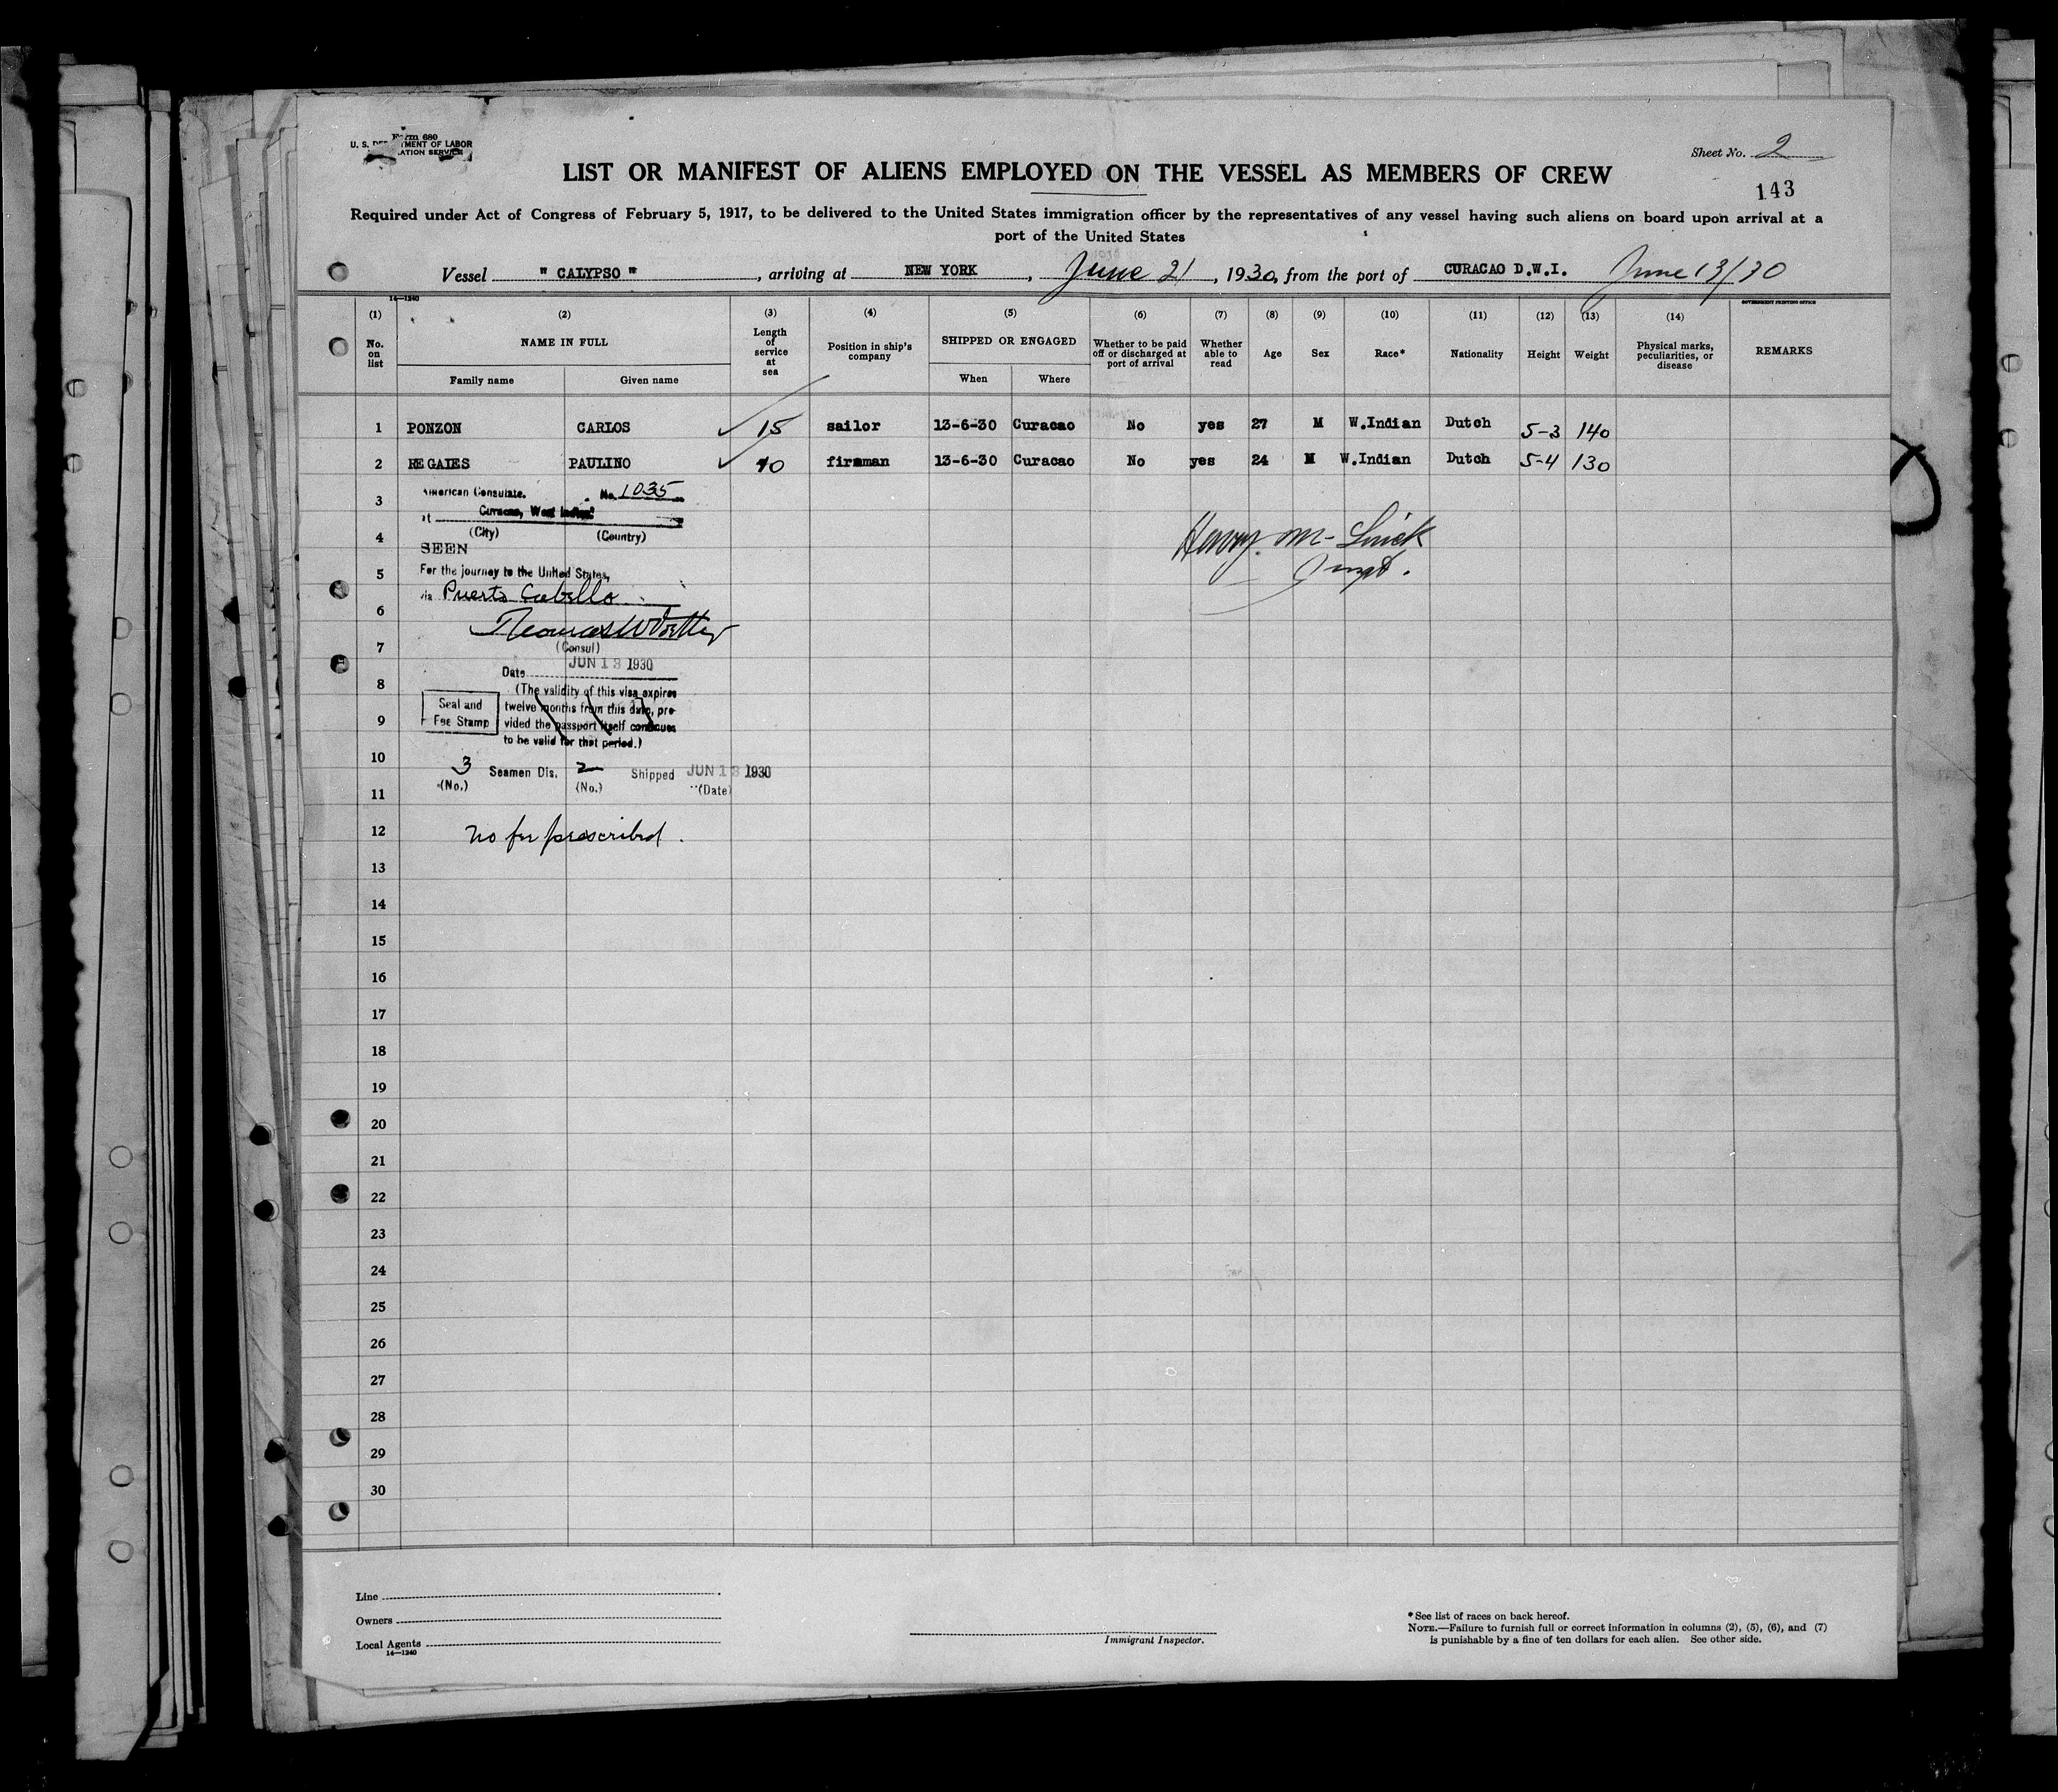 Form 680
U. S. DEPARTMENT OF LABOR
Sheet No. 2
LIST OR MANIFEST OF ALIENS EMPLOYED ON THE VESSEL AS MEMBERS OF CREW
143
Required under Act of Congress of February 5, 1917, to be delivered to the United States immigration officer by the representatives of any vessel having such aliens on board upon arrival at a
port of the United States
Vessel " CALYPSO ", arriving at NEW YORK, June 21, 1930, from the port of CURACAO D.W.I. June 13/30
14—1240
GOVERNMENT PRINTING OFFICE
(1) (2) (3) (4) (5) (6) (7) (8) (9) (10) (11) (12) (13) (14)
No. on list
NAME IN FULL
Family name
Given name
Length of service at sea
Position in ship's company
SHIPPED OR ENGAGED
When
Where
Whether to be paid off or discharged at port of arrival
Whether able to read
Age
Sex
Race*
Nationality
Height
Weight
Physical marks, peculiarities, or disease
REMARKS
1 PONZON CARLOS 15 sailor 13-6-30 Curacao No yes 27 M W.Indian Dutch 5-3 140
2 REGAIES PAULINO 10 fireman 13-6-30 Curacao No yes 24 M W.Indian Dutch 5-4 130
3
American Consulate. No. 1035
at Curacao, West Indies
4
(City) (Country)
SEEN
5
For the journey to the United States,
via Puerto Cabello
6
7
(Consul)
Date JUN 13 1930
8
(The validity of this visa expires
twelve months from this date, pro-
vided the passport itself continues
to be valid for that period.)
Seal and
Fee Stamp
9
10
3 Seamen Dis. 2 Shipped JUN 13 1930
(No.) (No.) (Date)
11
12
No fee prescribed.
Henry M-
Inspt.
13
14
15
16
17
18
19
20
21
22
23
24
25
26
27
28
29
30
Line
Owners
Local Agents
14—1240
Immigrant Inspector.
*See list of races on back hereof.
NOTE.—Failure to furnish full or correct information in columns (2), (5), (6), and (7)
is punishable by a fine of ten dollars for each alien. See other side.